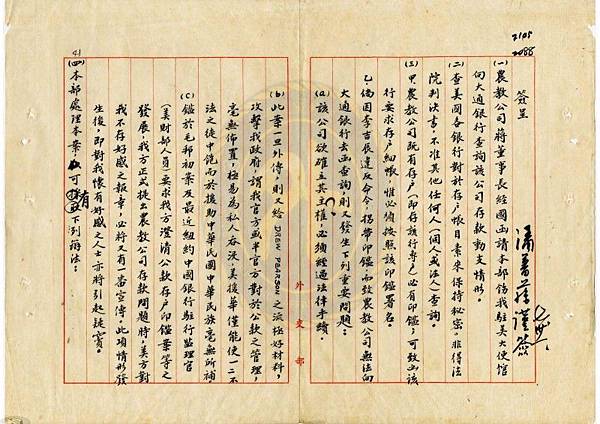 2105
2088
簽呈
(一)農教公司蔣董事長經國函請本部飭我駐美大使館
向大通銀行查詢該公司存款動支情形。
(二)查美國各銀行對於存戶帳目素來保持秘密。非得法
院判決書,不准其他任何人(個人或法人)查詢。
(三)甲、農教公司既有存戶(即存該行專戶)必有印鑑,可致函該
行要求存戶細帳,惟必須按照該印鑑署名。
乙、倘因李吉辰違反命令,携帶印鑑,而致農教公司無法向
大通銀行去函查詢,則又發生下列重要問題:
(a)該公司欲確立其主權,必須經過法律手續。
外交部
(b)此案一旦外傳,則又給DREW PEARSON之流極好材料,
攻擊我政府,謂我官方或半官方對於公款之管理,
毫無佈置,極易為私人吞沒,美援華僅能使一二不
法之徒中飽,而於援助中華民國中華民族毫無所補
(c)鑑於毛邦初案及最近紐約中國銀行駐行監理官
(美財部人員)要求我方澄清公款存戶印鑑華等之
發展,我方正式提出農教公司存款問題時,美方對
我不存好感之報章,必將又有一番宣傳。此項情形發
生後,即對我懷有好感人士亦將引起疑竇。
(四)本部處理本案,可有下列辦法:
41